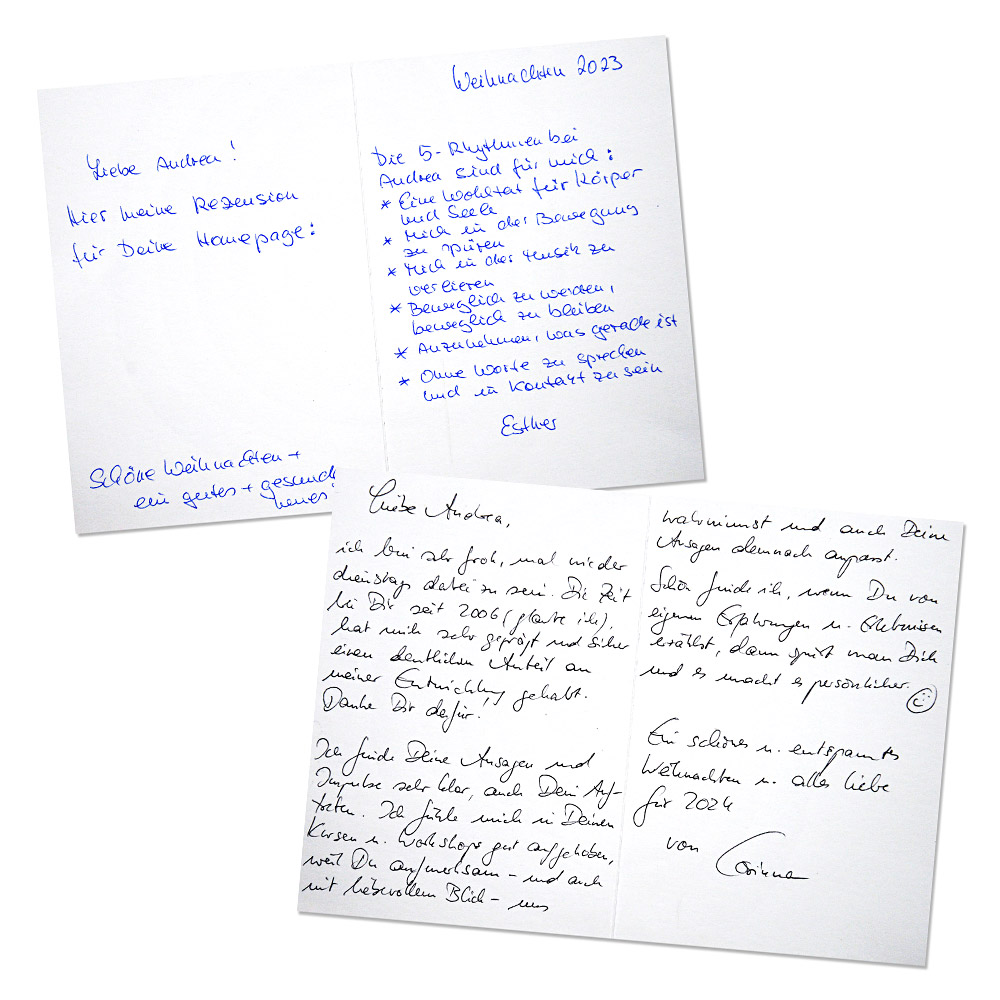 Liebe Andrea!
Hier meine Rezension
für Deine Homepage:
Schöne Weihnachten +
ein gutes + gesundes
neues!
Weihnachten 2023
Die 5-Rhythmen bei
Andrea sind für mich:
* Eine Wohltat für Körper
und Seele
* Mich in der Bewegung
zu spüren
* Mich in der Musik zu
verlieren
* Beweglich zu werden,
beweglich zu bleiben
* Anzunehmen, was gerade ist
* Ohne Worte zu sprechen
und in Kontakt zu sein
Esther
Liebe Andrea,
ich bin sehr froh, mal wieder
dienstags dabei zu sein. Die Zeit
bei Dir seit 2006 (glaube ich),
hat mich sehr geprägt und sicher
einen deutlichen Anteil an
meiner Entwicklung gehabt.
Danke Dir dafür.
Ich finde Deine Ansagen und
Impulse sehr klar, auch Dein Auf-
treten. Ich fühle mich in Deinen
Kursen u. Workshops gut aufgehoben,
weil Du aufmerksam - und auch
mit liebevollem Blick - uns
wahrnimmst und auch Deine
Ansagen demnach anpasst.
Schön finde ich, wenn Du von
eigenen Erfahrungen u. Erlebnissen
erzählst, dann spürt man Dich
und es macht es persönlicher.
Ein schönes u. entspanntes
Weihnachten u. alles Liebe
für 2024
von Corinna